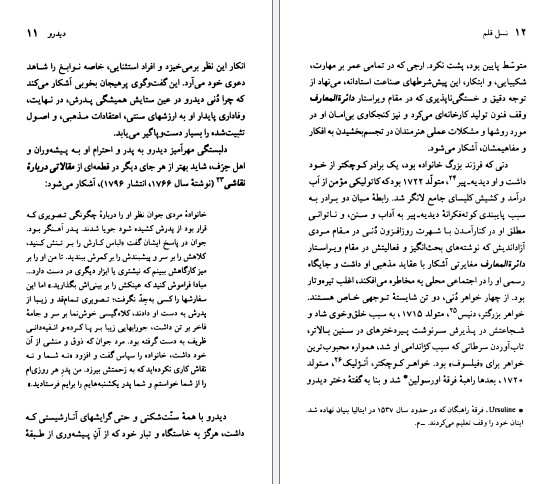 دیدرو ۱۱
انکار این نظر برمی‌خیزد و افراد استثنایی، خاصه نوابغ را شاهد
دعوی خود می‌آرد. این گفت‌وگوی پرهیجان بخوبی آشکار می‌کند
که چرا دُنی دیدرو در عین ستایش همیشگی پدرش، در نهایت،
وفاداری پایدار او به ارزشهای سنتی، اعتقادات مذهبی، و اصول
تثبیت‌شده را بسیار دست‌وپاگیر می‌یابد.
دلبستگی مهرآمیز دیدرو به پدر و احترام او به پیشه‌وران و
اهل حِرَف، شاید بهتر از هر جای دیگر در قطعه‌ای از مقالاتی دربارهٔ
نقاشی۲۳ (نوشتهٔ سال ۱۷۶۶، انتشار ۱۷۹۶)، آشکار می‌شود:
خانوادهٔ مردی جوان نظر او را دربارهٔ چگونگی تصویری که
قرار بود از پدرش کشیده شود جویا شدند. پدر آهنگر بود.
جوان در پاسخ ایشان گفت «لباس کارش را بر تنش کنید،
کلاهش را بر سر و پیشبندش را بر کمرش ببندید. تا من او را بر
میز کارگاهش ببینم که نیشتری یا ابزار دیگری در دست دارد...
مبادا فراموش کنید که عینکش را بر بینی‌اش بگذارید.» اما این
سفارشها را کسی به‌جِدّ نگرفت؛ تصویری تمام‌قد و زیبا از
پدرش به دست او دادند، کلاه‌گیسی خوش‌نما بر سر و جامهٔ
فاخر بر تن داشت، جورابهایی زیبا بر پا کرده‌و انفیه‌دانی
ظریف به دست گرفته بود. مرد جوان که ذوق و منشی از آن
خود داشت، خانواده را سپاس گفت و افزود «نه شما و نه
نقاش کاری نکرده‌اید که به زحمتش بیرزد. من پدرِ هر روزی‌ام
را از شما خواستم و شما پدر یکشنبه‌هایم را برایم فرستادید.»
دیدرو با همهٔ سنّت‌شکنی و حتی گرایشهای آنارشیستی که
داشت، هرگز به خاستگاه و تبار خود که از آنِ پیشه‌وری از طبقهٔ
۱۲ نسل قلم
متوسّط پایین بود، پشت نکرد. ارجی که در تمامی عمر بر مهارت،
شکیبایی، و ابتکار، این پیش‌شرطهای صناعت استادانه، می‌نهاد از
توجه دقیق و خستگی‌ناپذیری که در مقام ویراستار دائرةالمعارف
وقف فنون تولید کارخانه‌ای می‌کرد و نیز کنجکاوی بی‌امان او در
مورد روشها و مشکلات عملی هنرمندان در تجسم‌بخشیدن به افکار
و مفاهیمشان، آشکار می‌شود.
دنی که فرزند بزرگ خانواده بود، یک برادر کوچکتر از خود
داشت و او دیدیه-پیر۲۴، متولّد ۱۷۲۲ بود که کاتولیکی مؤمن از آب
درآمد و کشیش کلیسای جامع لانگر شد. رابطهٔ میان دو برادر به
سبب پایبندی کوته‌فکرانهٔ دیدیه-پیر به آداب و سنن، و ناتوانی
مطلق او در کنارآمدن با شهرت روزافزون دُنی در مقام مردی
آزاداندیش که نوشته‌های بحث‌انگیز و فعالیتش در مقام ویراستار
دائرةالمعارف مغایرتی آشکار با عقاید مذهبی او داشت و جایگاه
رسمی او را در اجتماعی محلی به مخاطره می‌افکند، اغلب تیره‌وتار
بود. از چهار خواهر دُنی، دو تن شایستهٔ توجهی خاص هستند.
خواهر بزرگتر، دنیس۲۵، متولد ۱۷۱۵، به سبب خلق‌وخوی شاد و
شجاعتش در پذیرش سرنوشت پیردخترهای در سنین بالاتر،
تاب‌آوردن سرطانی که سبب کژاندامی او شد، همواره محبوب‌ترین
خواهر برای «فیلسوف» بود. خواهر کوچکتر، آنژلیک۲۶، متولد
۱۷۲۰، بعدها راهبهٔ فرقهٔ اورسولین* شد و بنا به گفتهٔ دختر دیدرو
* Ursuline، فرقهٔ راهبگان که در حدود سال ۱۵۳۷ در ایتالیا بنیان نهاده شد.
اینان خود را وقف تعلیم می‌کردند. ــم.